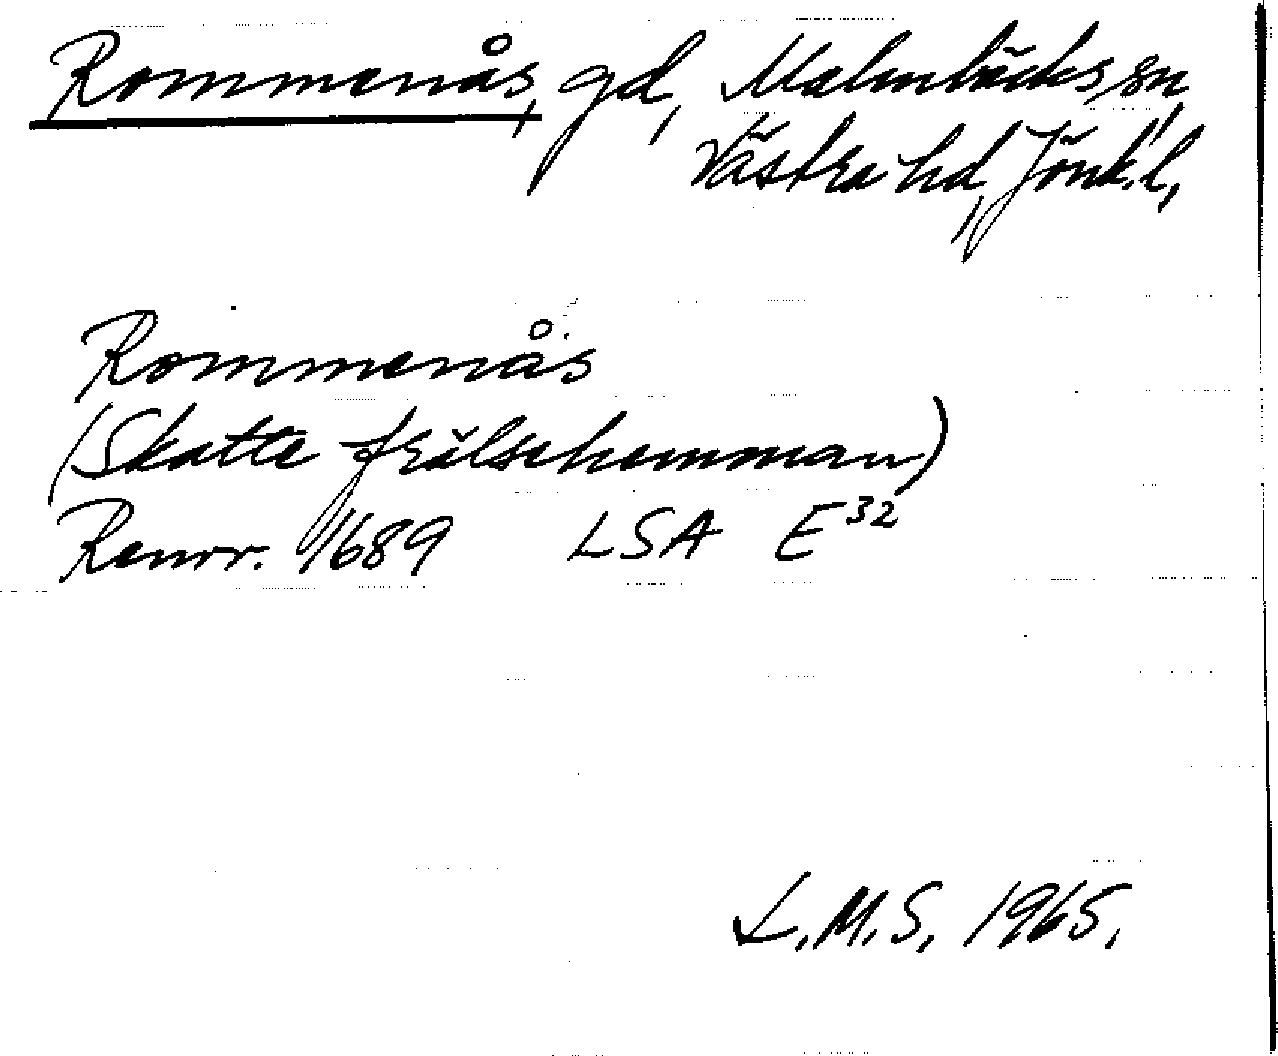 Rommenås, gd, Malmbäcks sn,
Västra hd, Jönk. l,
Rommenås
(Skatte frälsehemman)
Renov. 1689 LSA E32
L.M.S. 1965.